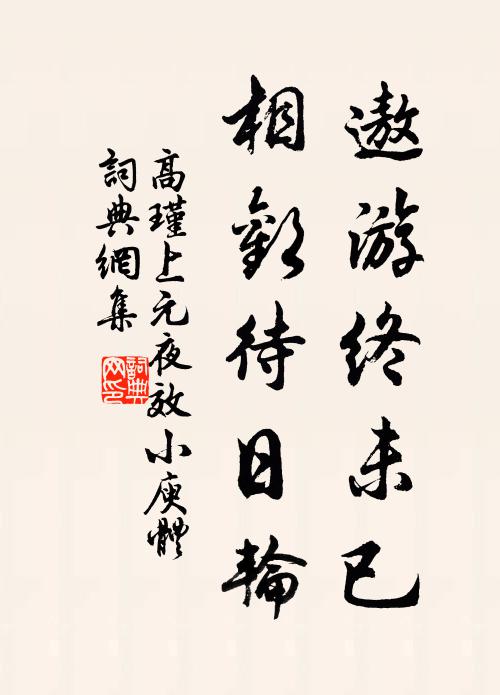 遨游終未已
相歡待日輪
高瑾上元夜效小庾體
詞典網集
詞典
网印